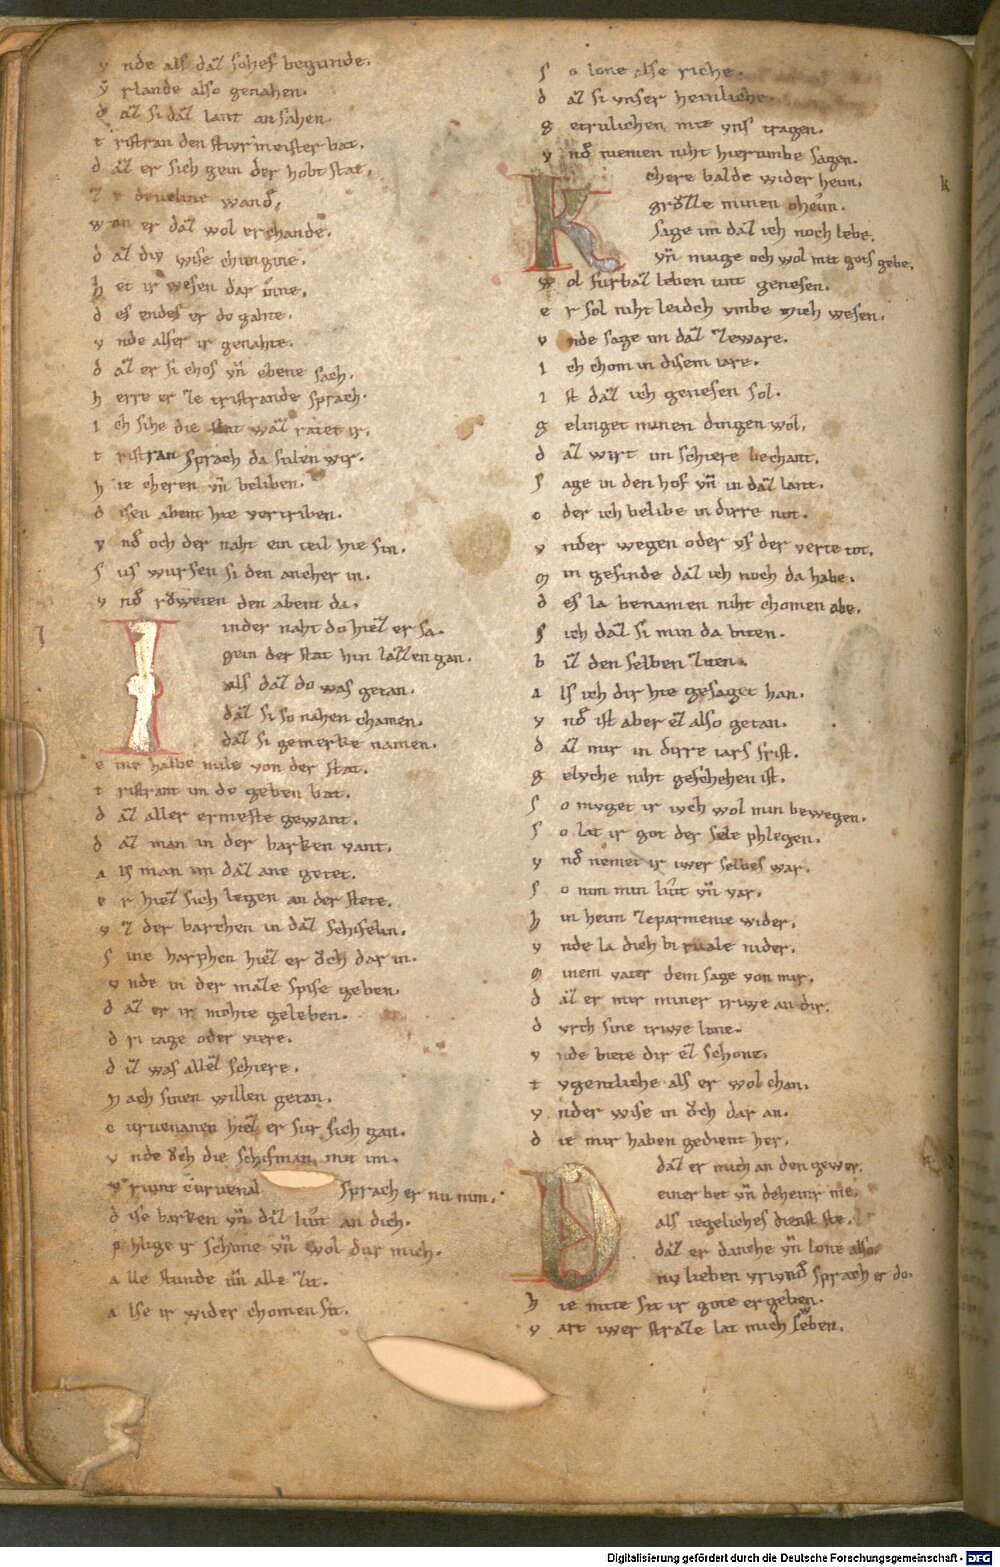 v nde als daz schef begunde.
v̂ rlande also genahen.
d az si daz lant an sahen.
t ristran den stiurmeister bat.
d az er sich gein der hobt stat.
z e deueline wand.
w an er daz wol erchande.
d az div wise chungine.
h et ir wesen dar inne.
d es endes er do gahte.
v nde alser ir genahte.
d az er si chos vn̄ ebene sach.
h erre er ze tristrande sprach.
i ch sihe die stat waz ratet ir.
t ristran sprach da sulen wir.
h ie cheren vn̄ beliben.
d isen abent hie vertriben.
v nd och der naht ein teil hie sin.
s us wurfen si den ancher in.
v nd růweten den abent da.
I inder naht do hiez er sa.
gein der stat hin lazzen gan.
als daz do was getan.
daz si so nahen chamen.
daz si gemerke namen.
e ine halbe mile von der stat.
t ristrant im do geben bat.
d az aller ermeste gewant.
d az man in der barken vant.
a ls man im daz ane getet.
e r hiez sich legen an der stete.
v z der barchen in daz schifelin.
s ine harphen hiez er ǒch dar in.
v nde in der maze spise geben.
d az er ir mohte geleben.
d ri tage oder viere.
d iz was allez schiere.
n ach sinen willen getan.
c urvenanen hiez er fur sich gan.
v nde ǒch die schifman mit im.
v riunt curvenal sprach er nu nim.
d ise barken vn̄ diz liut an dich.
p hlige ir schone vn̄ wol dur mich.
a lle stunde vn̄ alle zit.
a lse ir wider chomen sit.
s o lone alse riche.
d az si vnser heinliche.
g etrulichen mit vns tragen.
v nd niemen niht hierumbe sagen.
K chere balde wider hein.
grǒzze minen oheim.
sage im daz ich noch lebe.
vn̄ muge och wol mit gots gebe.
w ol furbaz leben unt genesen.
e r sol niht leidich vmbe mich wesen.
v nde sage im daz zeware.
i ch chom in disem iare.
i st daz ich genesen sol.
g elinget minen dingen wol.
d az wirt im schiere bechant.
s age in den hof vn̄ in daz lant.
o der ich belibe in dirre not.
v nder wegen oder vf der verte tot.
m in gesinde daz ich noch da habe.
d es la benamen niht chomen abe.
s ich daz si min da biten.
b iz den selben ziten.
a ls ich dir hie gesaget han.
v nd ist aber ez also getan.
d az mir in dirre iars frist.
g elvche niht geschehen ist.
s o mvget ir ivch wol min bewegen.
s o lat ir got der sele phlegen.
v nd nemet ir iwer selbes war.
s o nim min liut vn̄ var.
h in heim zeparmenie wider.
v nde la dich bi ruale nider.
m inem vater dem sage von mir.
d az er mir miner triwe an dir.
d vrch sine triwe lone.
v nde biete dir ez schone.
t vgentliche als er wol chan.
v nder wise in ǒch dar an.
d ie mir haben gedient her.
D daz er mich an den gewer.
einer bet vn̄ deheinr me.
als iegeliches dienst ste.
daz er danche vn̄ lone also.
nv lieben vrivnd sprach er do.
h ie mite sit ir gote ergeben.
v art iwer straze lat mich sweben.
k
Digitalisierung gefördert durch die Deutsche Forschungsgemeinschaft - DFG